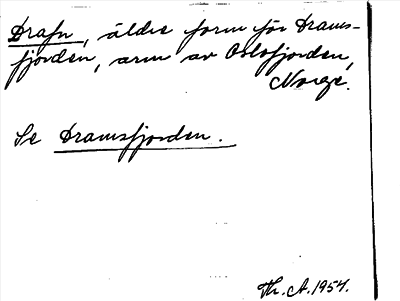 Drafn, äldre form för Drams-
fjorden, arm av Oslofjorden,
Norge.
Se Dramsfjorden.
Th. A. 1954.